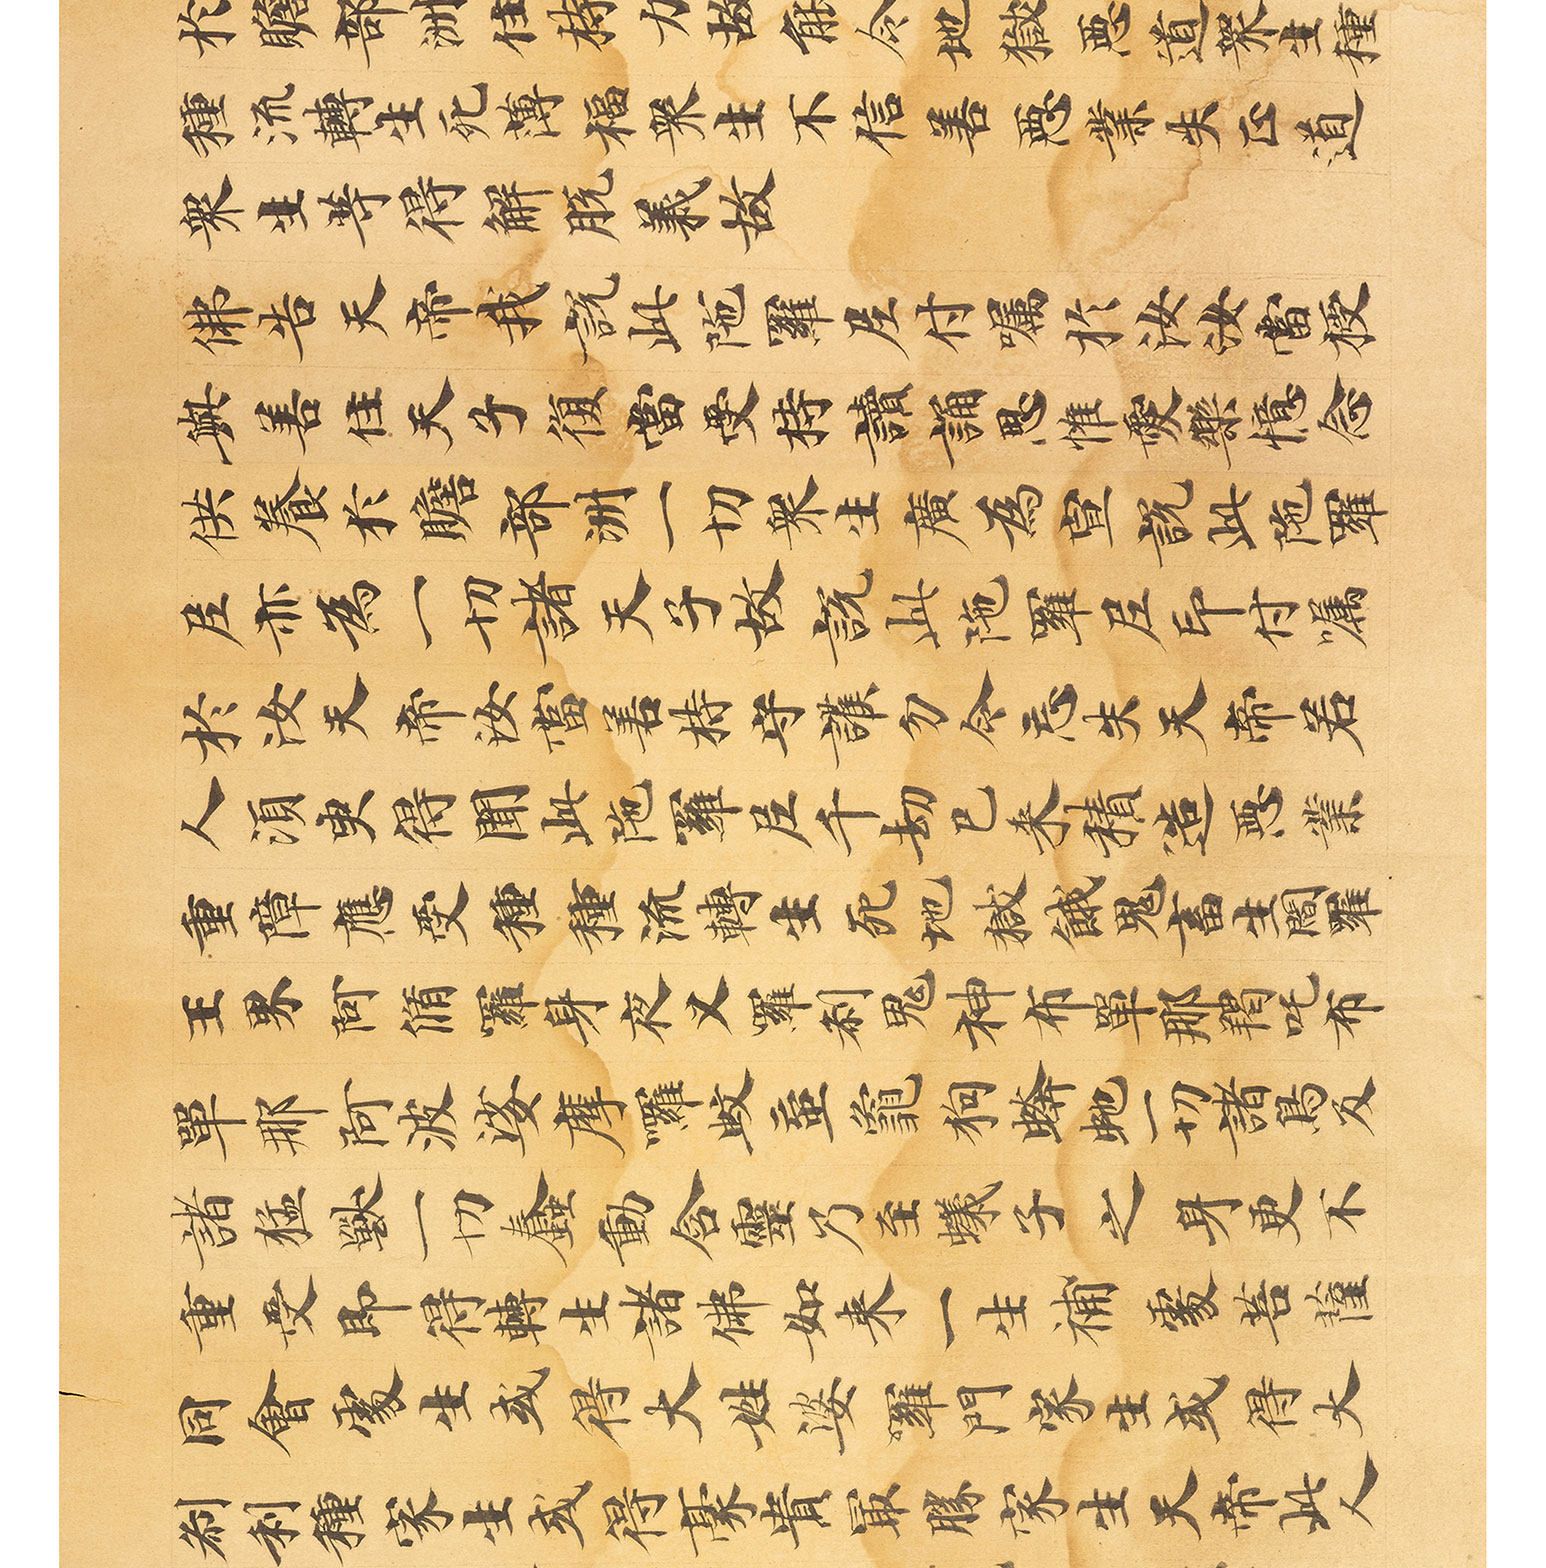 於贍部洲住持力故能令地獄惡道衆生種
種流轉生死薄福衆生不信善惡業失正道
衆生等得解脫義故
佛告天帝我說此陁羅尼付囑於汝汝當授
與善住天子復當受持讀誦思惟愛樂憶念
供養於贍部洲一切衆生廣為宣說此陁羅
尼亦為一切諸天子故說此陁羅尼印付囑
於汝天帝汝當善持守護勿令忘失天帝若
人須臾得聞此陁羅尼千劫已来積造惡業
重障應受種種流轉生死地獄餓鬼畜生閻羅
王界阿脩羅身夜叉羅刹鬼神布單那羯吒布
單那阿波娑摩囉蚊䖟龜狗蟒虵一切諸鳥及
諸猛獸一切蠢動含靈乃至蟻子之身更不
重受即得轉生諸佛如来一生補處菩薩
同會處生或得大姓婆羅門家生或得大
刹利種家生或得豪貴最勝家生天帝此人